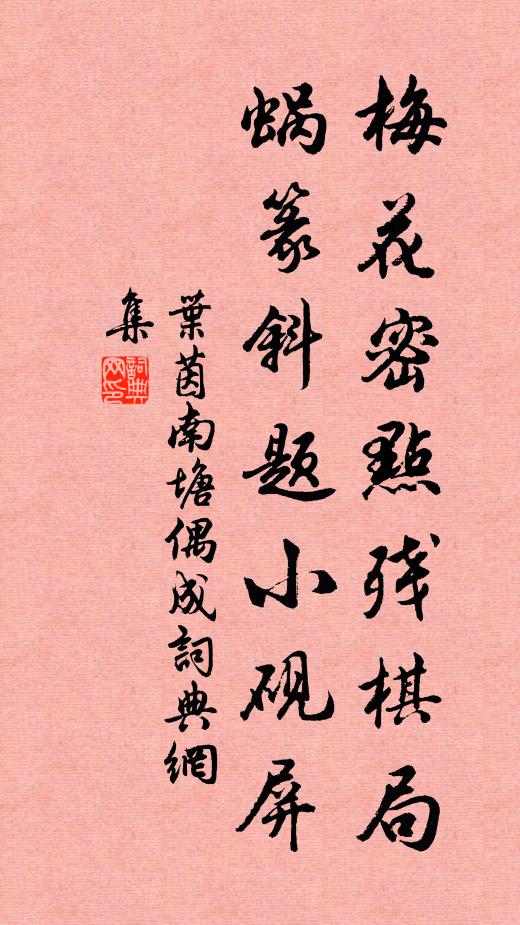 梅花密點残棋局
蝸篆斜题小砚屏
葉茵南塘偶成詞典網
集
詞典
网印